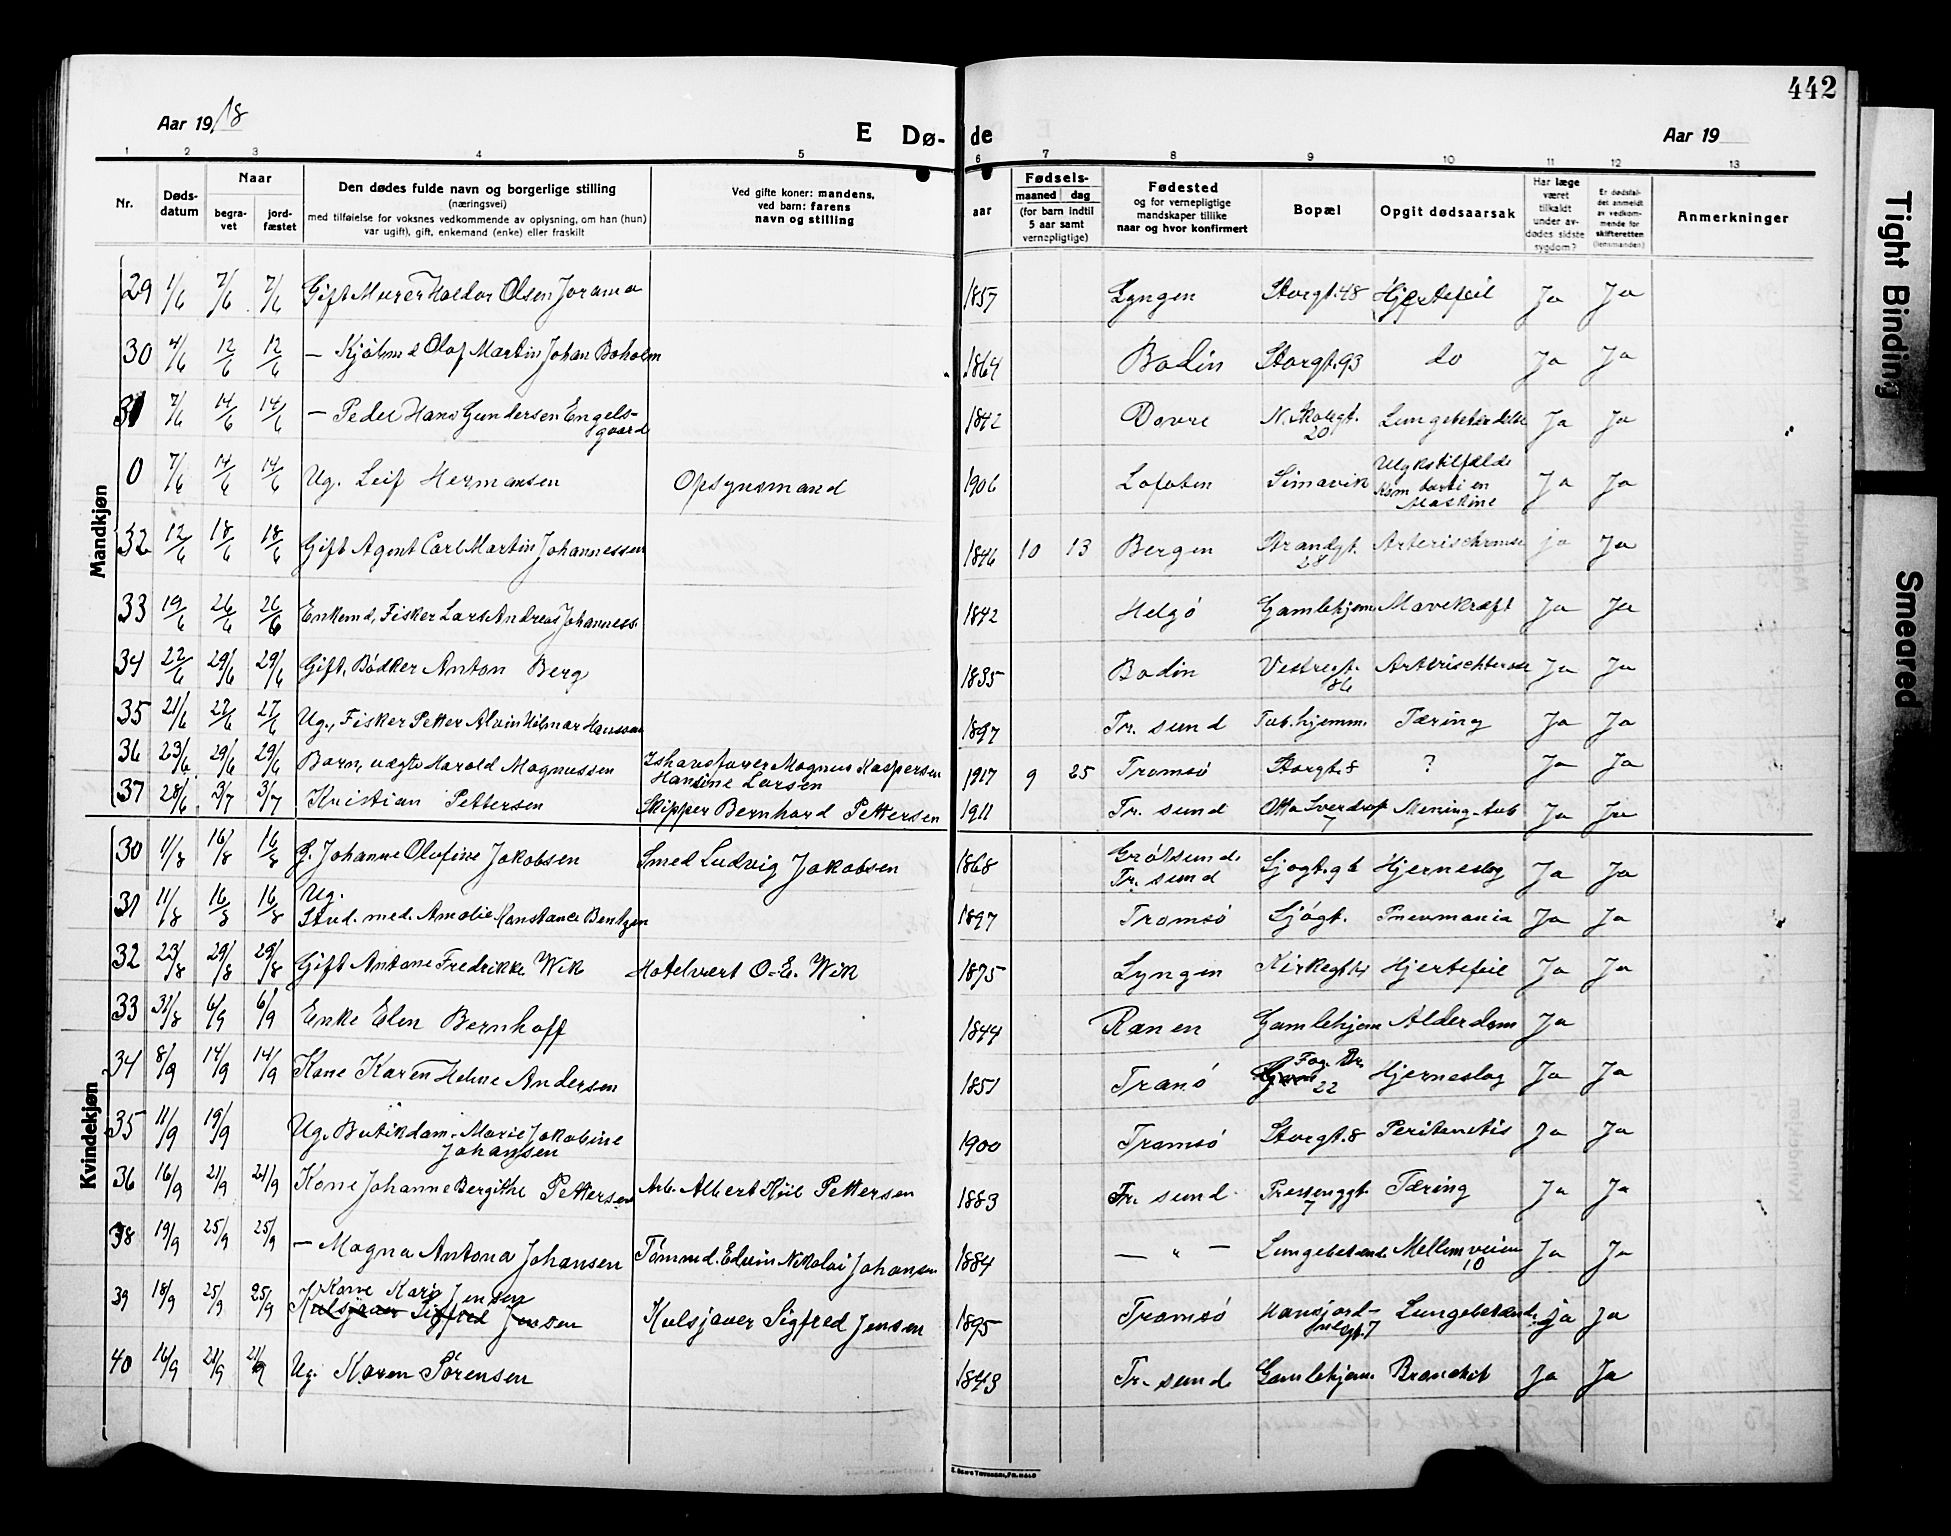 442
Aar 1918 E Dø- de Aar 19
1 2 3 4 5 6 7 8 9 10 11 12 13
Nr. Døds-datum Naar begra-vet jord-fæstet Den dødes fulde navn og borgerlige stilling (næringsvei) med tilføielse for voksnes vedkommende av oplysning, om han (hun) var ugift), gift, enkemand (enke) eller fraskilt Ved gifte koner: mandens, ved barn: farens navn og stilling aar Fødsels- maaned dag (for barn indtil 5 aar samt vernepligtige) Fødested og for vernepligtige mandskaper tillike naar og hvor konfirmert Bopæl Opgit dødsaarsak Har læge været tilkaldt under av-dødes sidste sygdom? Er dødsfal-det anmeldt av vedkom-mende for skifteretten (lensmanden) Anmerkninger
Mandkjøn
29 1/6 7/6 7/6 Gift Murer Haldor Olsen Jorama 1857 Lyngen Storgt. 48 Hjertefeil Ja Ja
30 4/6 12/6 12/6 — Kjøbmd Olaf Martin Johan Boholm 1864 Bodin Storgt. 93 do Ja Ja
31 7/6 14/6 14/6 — Peder Hans Gundersen Engels-gaard 1842 Dovre N. Skolegt. 20 Ja Ja
0 7/6 14/6 14/6 Ug. Leif Hermansen Opsynsmand 1906 Lofoten Simavik Ulykstilfælde Kom bort i en Maskine Ja Ja
32 12/6 18/6 18/6 Gift Agent Carl Martin Johannessen 1846 10 13 Bergen Strandgt. 28 ja Ja
33 19/6 26/6 26/6 Enkemd, Fisker Lars Andreas Johanness. 1842 Helgö Gamlehjem Mavekræft Ja Ja
34 22/6 29/6 29/6 Gift, Bödker Anton Berg 1855 Bodin Vestregt. 86 Ja Ja
35 21/6 27/6 27/6 Ug., Fisker Petter Alvin Hilmar Hanssen 1897 Tr. sund Tub. hjemm. Tæring Ja Ja
36 23/6 29/6 29/6 Barn, uægte Harald Magnussen Ishavsfarer Magnus Kaspersen Hansine Larsen 1917 9 25 Tromsö Storgt. 8 ? Ja Ja
37 28/6 3/7 3/7 Kristian Pettersen Skipper Bernhard Pettersen 1911 Tr. sund Otto Sverdrup 7 Mening. tub Ja Ja
Kvindekjøn
30 11/8 16/8 16/8 G. Johanne Olufine Jakobsen Smed Ludvig Jakobsen 1868 Grötsund. Tr. sund Hjerneslag Ja Ja
31 11/8 16/8 16/8 Ug. Stud. med. Amalie Konstance Bentzen 1897 Tromsö Sjögt. Pneumonia Ja Ja
32 23/8 29/8 29/8 Gift Antone Fredrikke Wik Hotelvert O. E. Wik 1875 Lyngen Hjertefeil Ja Ja
33 31/8 6/9 6/9 Enke Elen Bernhoff 1844 Ranen Gamlehjem Alderdom Ja
34 8/9 14/9 14/9 Kone Karen Helene Andersen 1851 Tranö 22 Hjerneslag Ja Ja
35 11/9 19/9 Ug. Butikdam. Marie Jakobine Johansen 1900 Tromsö Storgt. 8 Peritonitis Ja Ja
36 16/9 21/9 21/9 Kone Johanne Bergithe Pettersen Arb. Albert Kiil Pettersen 1883 Tr. sund 7 Tæring Ja Ja
38 19/9 25/9 25/9 — Magna Antona Johansen Tömmd. Edvin Nikolai Johansen 1884 — " — Lungebetænd. Mellemveien 10 Ja Ja
39 18/9 25/9 25/9 Kone Kari Jensen Kulsjauer Sigfred Jensen Kulsjauer Sigfred Jensen 1895 Tromsö Hansjord-nesgt. 7 Lungebetænd. Ja Ja
40 16/9 21/9 21/9 Ug. Maren Sörensen 1843 Tr. sund Gamlehjem. Bronchit Ja Ja
Tight Binding
Smeared